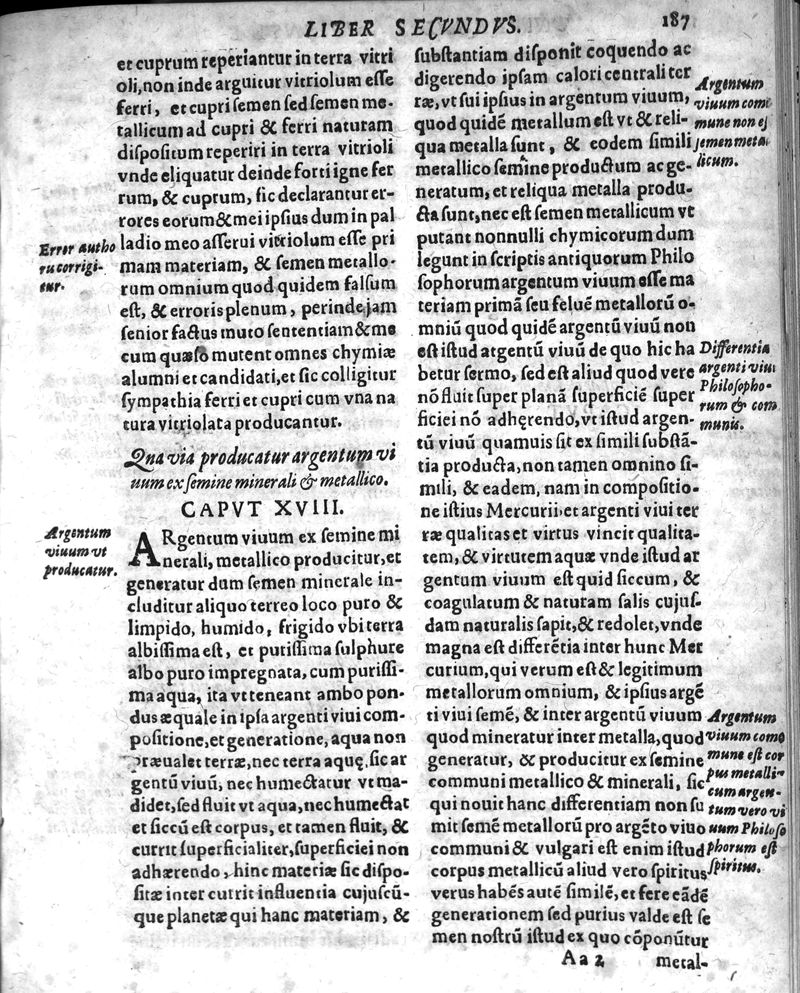 LIBER SECVNDVS.
187
et cuprum reperiantur in terra vitri
oli, non inde arguitur vitriolum eſſe
ferri, et cupri ſemen ſed ſemen me-
tallicum ad cupri & ferri naturam
diſpoſitum reperiri in terra vitrioli
vnde eliquatur deinde forti igne fer
rum, & cuprum, ſic declarantur er-
rores eorum & mei ipſius dum in pal
ladio meo aſſerui vitriolum eſſe pri
mam materiam, & ſemen metallo-
rum omnium quod quidem falſum
eſt, & erroris plenum, perinde jam
ſenior factus muto ſententiam & me
cum quæſo mutent omnes chymiæ
alumni et candidati, et ſic colligitur
ſympathia ferri et cupri cum vna na
tura vitriolata producantur.
Error autho
ru corrigi-
tur.
Qua via producatur argentum vi
uum ex ſemine minerali & metallico.
CAPVT XVIII.
Argentum
viuum vt
producatur.
ARgentum viuum ex ſemine mi
nerali, metallico producitur, et
generatur dum ſemen minerale in-
cluditur aliquo terreo loco puro &
limpido, humido, frigido vbi terra
albiſſima eſt, et puriſſima ſulphure
albo puro impregnata, cum puriſſi-
ma aqua, ita vt teneant ambo pon-
dus æquale in ipſa argenti viui com-
poſitione, et generatione, aqua non
præualet terræ, nec terra aquę, ſic ar
gentū viuū, nec humectatur vt ma-
didet, ſed fluit vt aqua, nec humectat
et ſiccū eſt corpus, et tamen fluit, &
currit ſuperficialiter, ſuperficiei non
adhærendo, hinc materiæ ſic diſpo-
ſitæ inter currit influentia cujuſcū-
que planetæ qui hanc materiam, &
ſubſtantiam diſponit coquendo ac
digerendo ipſam calori centrali ter
ræ, vt ſui ipſius in argentum viuum,
quod quidē metallum eſt vt & reli-
qua metalla ſunt, & eodem ſimili
metallico ſemine productum ac ge-
neratum, et reliqua metalla produ-
cta ſunt, nec eſt ſemen metallicum vt
putant nonnulli chymicorum dum
legunt in ſcriptis antiquorum Philo
ſophorum argentum viuum eſſe ma
teriam primā ſeu ſeluē metallorū o-
mniū quod quidē argentū viuū non
eſt iſtud argentū viuū de quo hic ha
betur ſermo, ſed eſt aliud quod vere
nō fluit ſuper planā ſuperficiē ſuper
ficiei nō adhęrendo, vt iſtud argen-
tū viuū quamuis ſit ex ſimili ſubſtā-
tia producta, non tamen omnino ſi-
mili, & eadem, nam in compoſitio-
ne iſtius Mercurii, et argenti viui ter
ræ qualitas et virtus vincit qualita-
tem, & virtutem aquæ vnde iſtud ar
gentum viuum eſt quid ſiccum, &
coagulatum & naturam ſalis cujuſ-
dam naturalis ſapit, & redolet, vnde
magna eſt differētia inter hunc Mer
curium, qui verum eſt & legitimum
metallorum omnium, & ipſius argē
ti viui ſemē, & inter argentū viuum
quod mineratur inter metalla, quod
generatur, & producitur ex ſemine
communi metallico & minerali, ſic
qui nouit hanc differentiam non ſu
mit ſemē metallorū pro argēto viuo
communi & vulgari eſt enim iſtud
corpus metallicū aliud vero ſpiritus
verus habēs autē ſimilē, et fere eādē
generationem ſed purius valde eſt ſe
men noſtrū iſtud ex quo cōponūtur
Argentum
viuum com
mune non eſ
ſemen meta
licum.
Differentia
argenti viui
Philoſopho-
rum & com
munis.
Argentum
viuum comō
mune eſt cor
pus metalli-
cum argen-
tum vero vi
uum Philoſo
phorum eſt
ſpiritus.
Aa 2
metal-